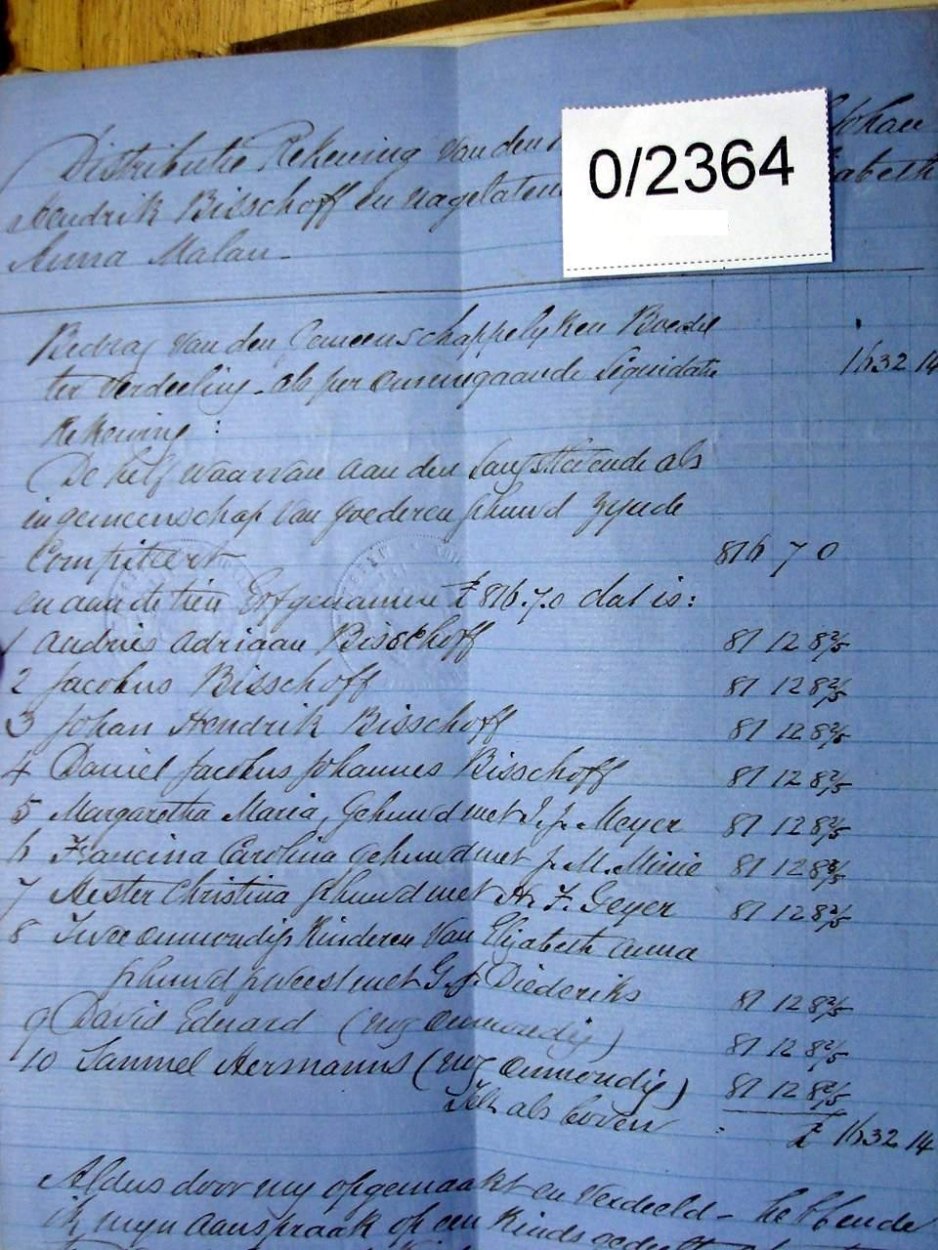 Distributie Rekening van den Johan
0/2364
Hendrik Bisschoff en nagelaten abeth
Anna Malan -
Bedrag van den Gemeenschappelyken Boedel
ter verdeeling - als per Liquidatie 1632 14
Rekening :
De helf waarvan aan den Langstlevende als
in gemeenschap van goederen gehuwd zynde
Competeert 816 7 0
en aan de tien Erfgenamen £816.7.0 dat is:
1 Andries Adriaan Bisschoff 81 12 8 2/5
2 Jacobus Bisschoff 81 12 8 2/5
3 Johan Hendrik Bisschoff 81 12 8 2/5
4 Daniel Jacobus Johannes Bisschoff 81 12 8 2/5
5 Margaretha Maria, Gehuwd met J. J. Meyer 81 12 8 2/5
6 Francina Carolina gehuwd met J. M. Minie 81 12 8 2/5
7 Hester Christina gehuwd met H. F. Geyer 81 12 8 2/5
8 Twee onmondige Kinderen van Elizabeth Anna
gehuwd geweest met G. J. Diederiks 81 12 8 2/5
9 David Eduard (nog onmondig) 81 12 8 2/5
10 Samuel Hermanus (nog onmondig) 81 12 8 2/5
als boven : £ 1632 14
Aldus door my opgemaakt en verdeeld - hebbende
ik myn aanspraak op een Kinds gedeelte